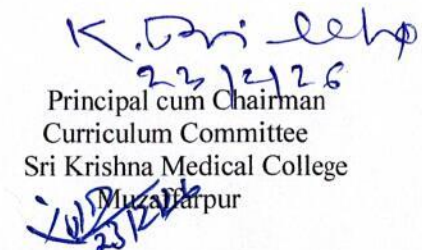 23/2/26
Principal cum Chairman
Curriculum Committee
Sri Krishna Medical College
Muzaffarpur